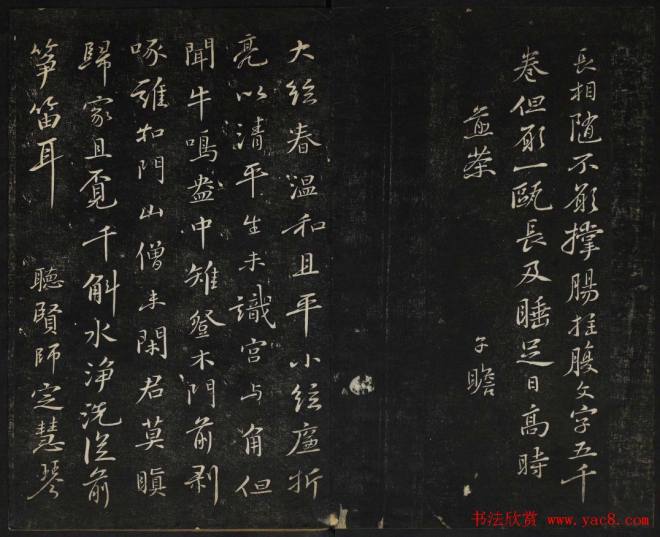 長相随不願撑腸拄腹文字五千
卷但願一甌長及睡足日高時
煎茶 子瞻
大絃春温和且平小絃廉折
亮以清平生未識宫与角但
聞牛鳴盎中雉登木門前剥
啄誰扣門山僧未閑君莫瞋
歸家且覓千斛水净洗從前
筝笛耳 聽賢師定慧琴
书法欣赏 www.yac8.com